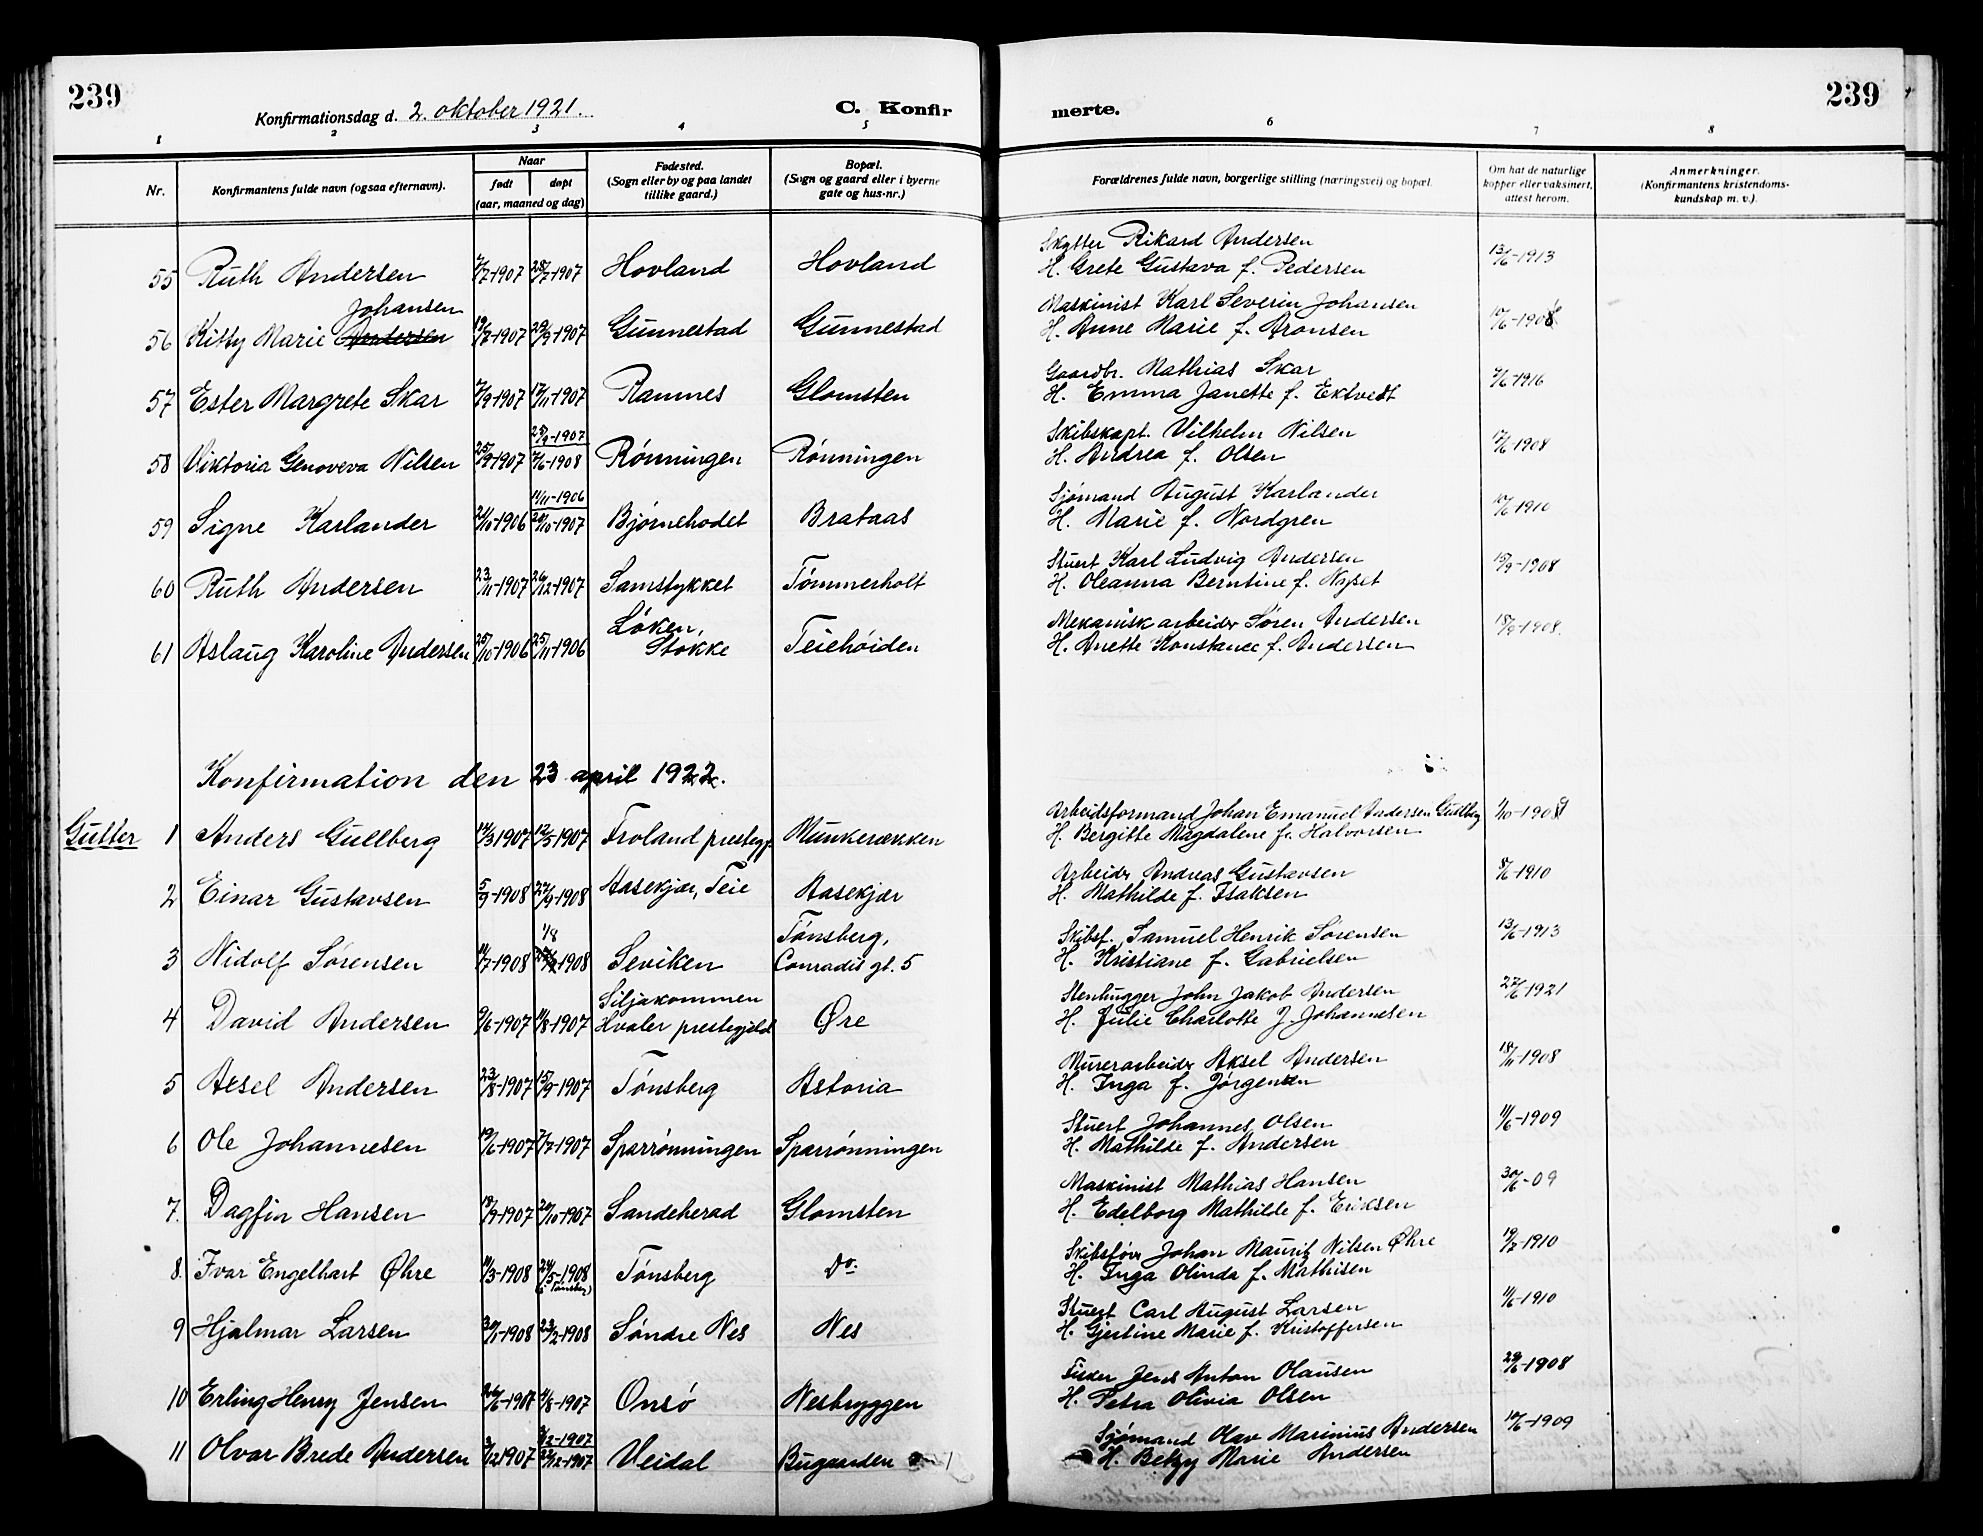 239
Konfirmationsdag d. 2. oktober 1921.
C. Konfir
merte.
239
1 2 3 4 5 6 7 8
Nr.
Konfirmantens fulde navn (ogsaa efternavn).
Naar
født
døpt
(aar, maaned og dag)
Fødested.
(Sogn eller by og paa landet
tillike gaard.)
Bopæl.
(Sogn og gaard eller i byerne
gate og hus-nr.)
Forældrenes fulde navn, borgerlige stilling (næringsvei) og bopæl.
Om hat de naturlige
kopper eller vaksinert,
attest herom.
Anmerkninger.
(Konfirmantens kristendoms-
kundskap m. v.).
Skytter Rikard Andersen
55 Ruth Andersen 7/7-1907 28/7-1907 Hovland Hovland H. Grete Gustava f. Pedersen 13/6-1913
Johansen
Maskinist Karl Severin Johansen
56 Kitty Marie Andersen 19/7-1907 29/9-1907 Gunnestad Gunnestad H. Anne Marie f. Aronsen 10/6-1908
Gaardbr. Mathias Skar
57 Ester Margrete Skar 7/9-1907 17/11-1907 Ramnes Glomsten H. Emma Janette f. Ektvedt 7/6-1916
25/9-1907
Skibskapt. Vilhelm Nilsen
58 Viktoria Genoveva Nilsen 25/9-1907 7/6-1908 Rønningen Rønningen H. Andrea f. Olsen 17/6-1908
11/11-1906
Sjømand August Karlander
59 Signe Karlander 21/10-1906 20/10-1907 Bjørnehodet Brataas H. Marie f. Nordgren 10/6-1910
Stuert Karl Ludvig Andersen
60 Ruth Andersen 23/11-1907 26/12-1907 Samstykket Tømmerholt H. Oleanna Berntine f. Nyset 15/9-1908
Løken,
Mekanisk arbeider Søren Andersen
61 Aslaug Karoline Andersen 25/10-1906 25/11-1906 Stokke Teiehøiden H. Anette Konstance f. Andersen 18/9-1908.
Konfirmation den 23 april 1922.
Arbeidsformand Johan Emanuel Andersen Gullberg
Gutter 1 Anders Gullberg 14/3 1907 12/5-1907 Froland prestegj. Munkerækken H. Bergitte Magdalene f. Halvorsen
Arbeider Andreas Gustavsen
2 Einar Gustavsen 5/9-1908 27/9-1908 Aasekjær, Teie Aasekjær H. Mathilde f. Isaksen 8/6-1910
1/8
Tønsberg,
Skibsf. Samuel Henrik Sørensen
3 Nidolf Sørensen 11/7-1908 1908 Seviken Conradis gt. 5 H. Kristiane f. Gabrielsen 13/6-1913
Siljakommen
Stenhugger John Jakob Andersen
4 David Andersen 9/6-1907 11/8-1907 Hvaler prestegjeld Øre H. Julie Charlotte f. Johannesen 27/6 1921
Murerarbeider Aksel Andersen
5 Aksel Andersen 23/8-1907 15/9-1907 Tønsberg Astoria H. Inga f. Jørgensen 18/11-1908
Stuert Johannes Olsen
6 Ole Johannesen 19/6-1907 7/7-1907 Sparrønningen Sparrønningen H. Mathilde f. Andersen 11/6-1909
Maskinist Mathias Hansen
7. Dagfin Hansen 18/9-1907 20/10-1907 Sandeherad Glomsten H. Edelborg Mathilde f. Eriksen 30/6-09
Skibsfører Johan Maurits Nilsen Øhre
8. Ivar Engelhart Øhre 11/3-1908 24/5-1908 (i Tønsberg) Tønsberg Do. H. Inga Olinda f. Mathisen 19/7-1910
Stuert Carl August Larsen
9 Hjalmar Larsen 30/1-1908 23/2-1908 Søndre Nes Nes H. Gjertine Marie f. Kristoffersen 11/6-1910
Fisker Jens Anton Olausen
10 Erling Henry Jensen 26/6-1907 4/8-1907 Onsø Nesbryggen H. Petra Olivia Olsen 29/6-1908
Sjømand Olav Marinius Andersen
11 Olvar Brede Andersen 3/12 1907 3/12-1907 22/12-1907 Veidal Bugaarden H. Betzy Marie Andersen 10/6-1909